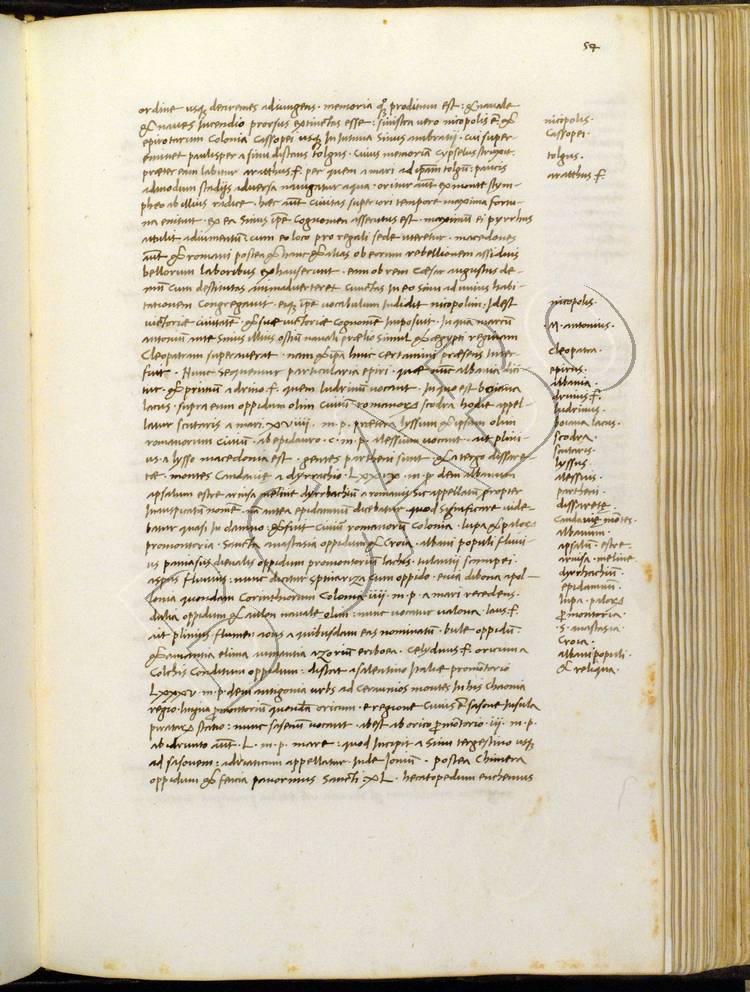 54
ordine usq; decemremes adiungens. memoria q3 proditum est: & navale
& naves Incendio prorsus extinctas esse: sinistra vero nicopolis ē &
epirotarum Colonia Cassopei usq; In Intima Sinus ambratii. cui super
eminet paulisper a sinu distans tolgus. Cuius memoriā cypselus struxit.
præter eam labitur aratthus f. per quem a mari ad ipsam tolgū: paucis
admodum stadijs adversa navigatur aqua. oritur aūt ex monte stym-
pheo ab illius radice. hæc aūt Civitas superiori tempore maxima fortu-
na enituit. ex ea Sinus ipe Cognomen assecutus est. maximū ei pyrrhus
attulit adiumentū: cum eo loco pro regali sede uteretur. macedones
aūt & romani postea & hanc & alias ob eorum rebellionem assiduis
bellorum laboribus exhauserunt. eam ob rem Cæsar augustus de-
mū Cum destitutas animadverteret cunctas In eo sinu ad unius habi-
tationem Congregavit. eiq; ipe vocabulum Indidit nicopolim: Idest
victorie civitatē. & suæ victorie Cognomē Imposuit. In qua marcū
antoniū ante Sinus illius ostiū navali prælio Simul & aegypti reginam
Cleopatram superaverat. nam & ipa huic Certamini præsens Inter
fuit. Nunc Sequemur particularia epiri. quæ nūc albania dici
tur. & primū a drino f. quem ludrinū vocant. In quo est boiana
lacus. supra eum oppidum olim Civiū romanorꝝ scodra hodie appel-
latur scutaris a mari. xviiii. m. p. præterea lyssum & ipsum olim
romanorum Civiū. ab epidauro. c. m. p. alessium vocant. ait plini
us. a lysso macedonia est. gentes partheni sunt & a tergo dissare-
te. montes Candaviæ a dyrrachio. Lxxix. m. p. dem albanum
apsalum estre arnisa meline dyrrhachiū a romanis sic appellatū propter
Inauspicatū nomē. nā antea epidamnus dicebatur quod significare vide-
batur quasi In damno: & fuit Civiū romanorū Colonia. lupa & palorꝝ
promontoria. Sancta anastasia oppidum & Croia. albani populi fluvi-
us paniasus dievalis oppidum promontoriū lachis. tulantii scampei.
aspas fluvius: nunc dicitur spinariza cum oppido. eiua dibona apol-
lonia quondam Corinthiorum Colonia. iiii. m. p. a mari recedens.
dalia oppidum & aulon navale olim: nunc vocatur valona. laus f.
ait plinius flumen aous a quibusdam eas nominatū. bule oppidū.
& amantia elima vimantia azoriū eriboea. Celydnus f. oricum a
Colchis Conditum oppidum: distat a salentino Italiæ promōtorio
Lxxxv. m. p. dem antigonia urbs ad Ceraunios montes In his Chaonia
regio. lingua pmontoriū quondā oricum. e regione Cuius ē sasone Insula
piratarꝝ statio: nunc sasenū vocant. abest ab orico pmōtorio. iij. m. p.
ab idrunto aūt. L. m. p. mare: quod Incipit a Sinu tergestino usq;
ad sasonem: adriaticum appellatur. Inde Ioniū. postea Chimera
oppidum & fencia panormus Sancti xL. hecatopedum euchemus
nicopolis.
Cassopei.
tolgus.
aratthus f.
nicopolis.
.M. antonius.
cleopatra.
epirus.
albania.
drinus f.
ludrinus.
boiana lacus.
scodra.
scutaris.
lyssus.
alessius.
partheni.
dissarete.
Candaviæ mōtes.
albanum.
apsalū. estre.
arnisa. meline.
dyrrhachiū.
epidamnū.
lupa. palorꝝ
pmontoria.
.S. anastasia.
Croia.
albani populi.
& reliqua.